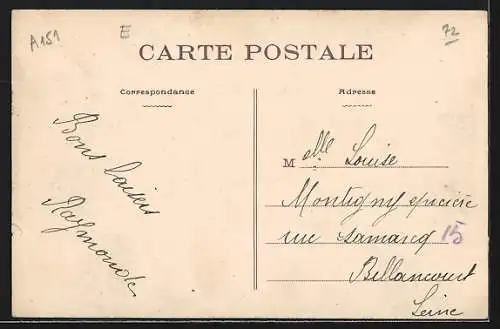 A151
E
72
CARTE POSTALE
Correspondance
Adresse
Bons baisers
Raymonde
Melle Louise
Montigny épicière
rue Samarcq 15
Billancourt
Seine